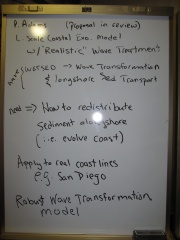 P. Adams (Proposal in review)
L. Scale Coastal Evo. Model
w/ "Realistic" Wave Treatment
Wave Transformation
longshore Sed Transport
need => How to redistribute
sediment alongshore
(i.e. evolve coast)
Apply to real coastlines
e.g. San Diego
Robust Wave Transformation
model